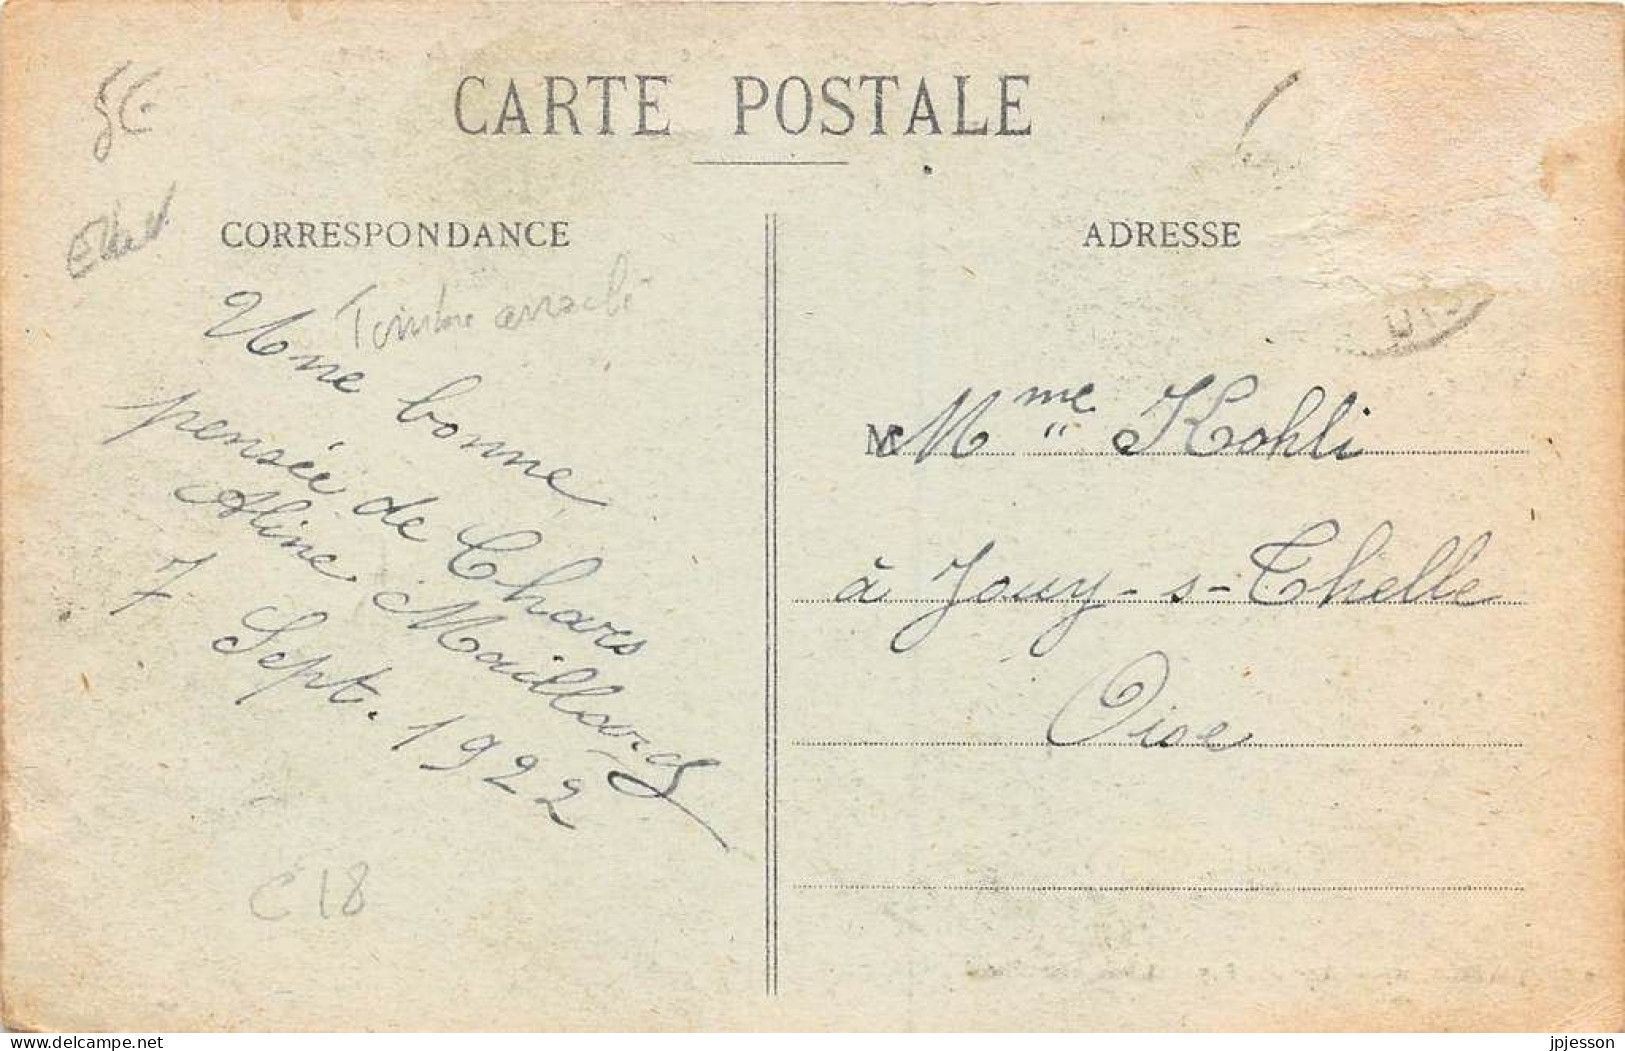 CARTE POSTALE
CORRESPONDANCE
ADRESSE
Timbre arraché
Une bonne
pensée de Chars
Aline Maillard
7 Sept. 1922
C18
M Mme Kohli
à Jouy-s-Thelle
Oise
delcampe.net
jpjesson